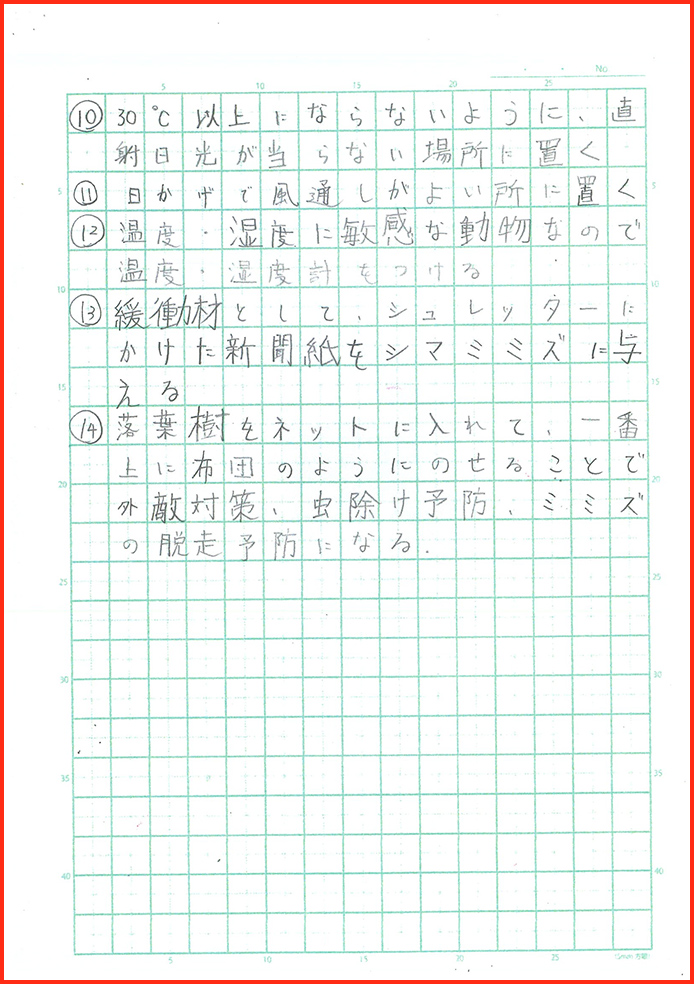 No.
5 10 15 20 25
⑩ 30℃以上にならないように、直
射日光が当らない場所に置く
5 ⑪ 日かげで風通しがよい所に置く 5
⑫ 温度・湿度に敏感な動物なので
温度・湿度計をつける
10 ⑬ 緩衝材として、シュレッダーに 10
かけた新聞紙をシマミミズに与
15 える 15
⑭ 落葉樹をネットに入れて、一番
上に布団のようにのせることで
20 外敵対策、虫除け予防、ミミズ 20
の脱走予防になる.
25 25
30 30
35 35
40 40
5 10 15 20 25 (5mm方眼)